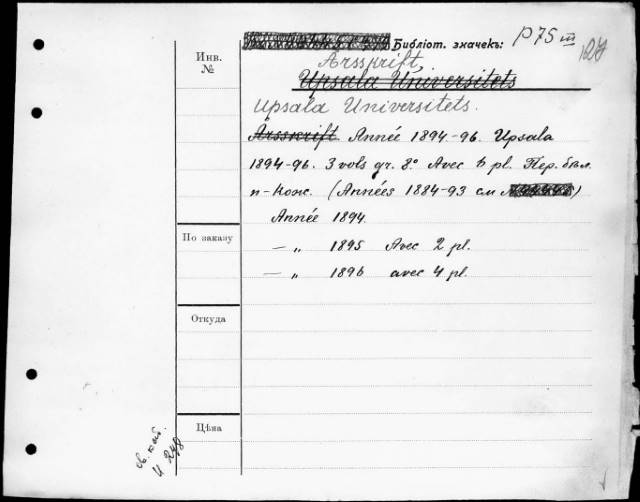 Библіот. значекъ: P75 III
Инв.
№
Årsskrift,
Upsala Universitets
Upsala Universitets.
Årsskrift. Année 1894-96. Upsala
1894-96. 3 vols gr. 8.° Avec 6 pl. Пер. бѣл.
п-кож. (Années 1884-93 см
Année 1894.
По заказу
— „ 1895 Avec 2 pl.
— „ 1896 avec 4 pl.
Откуда
Цѣна
св. каб.
И 248